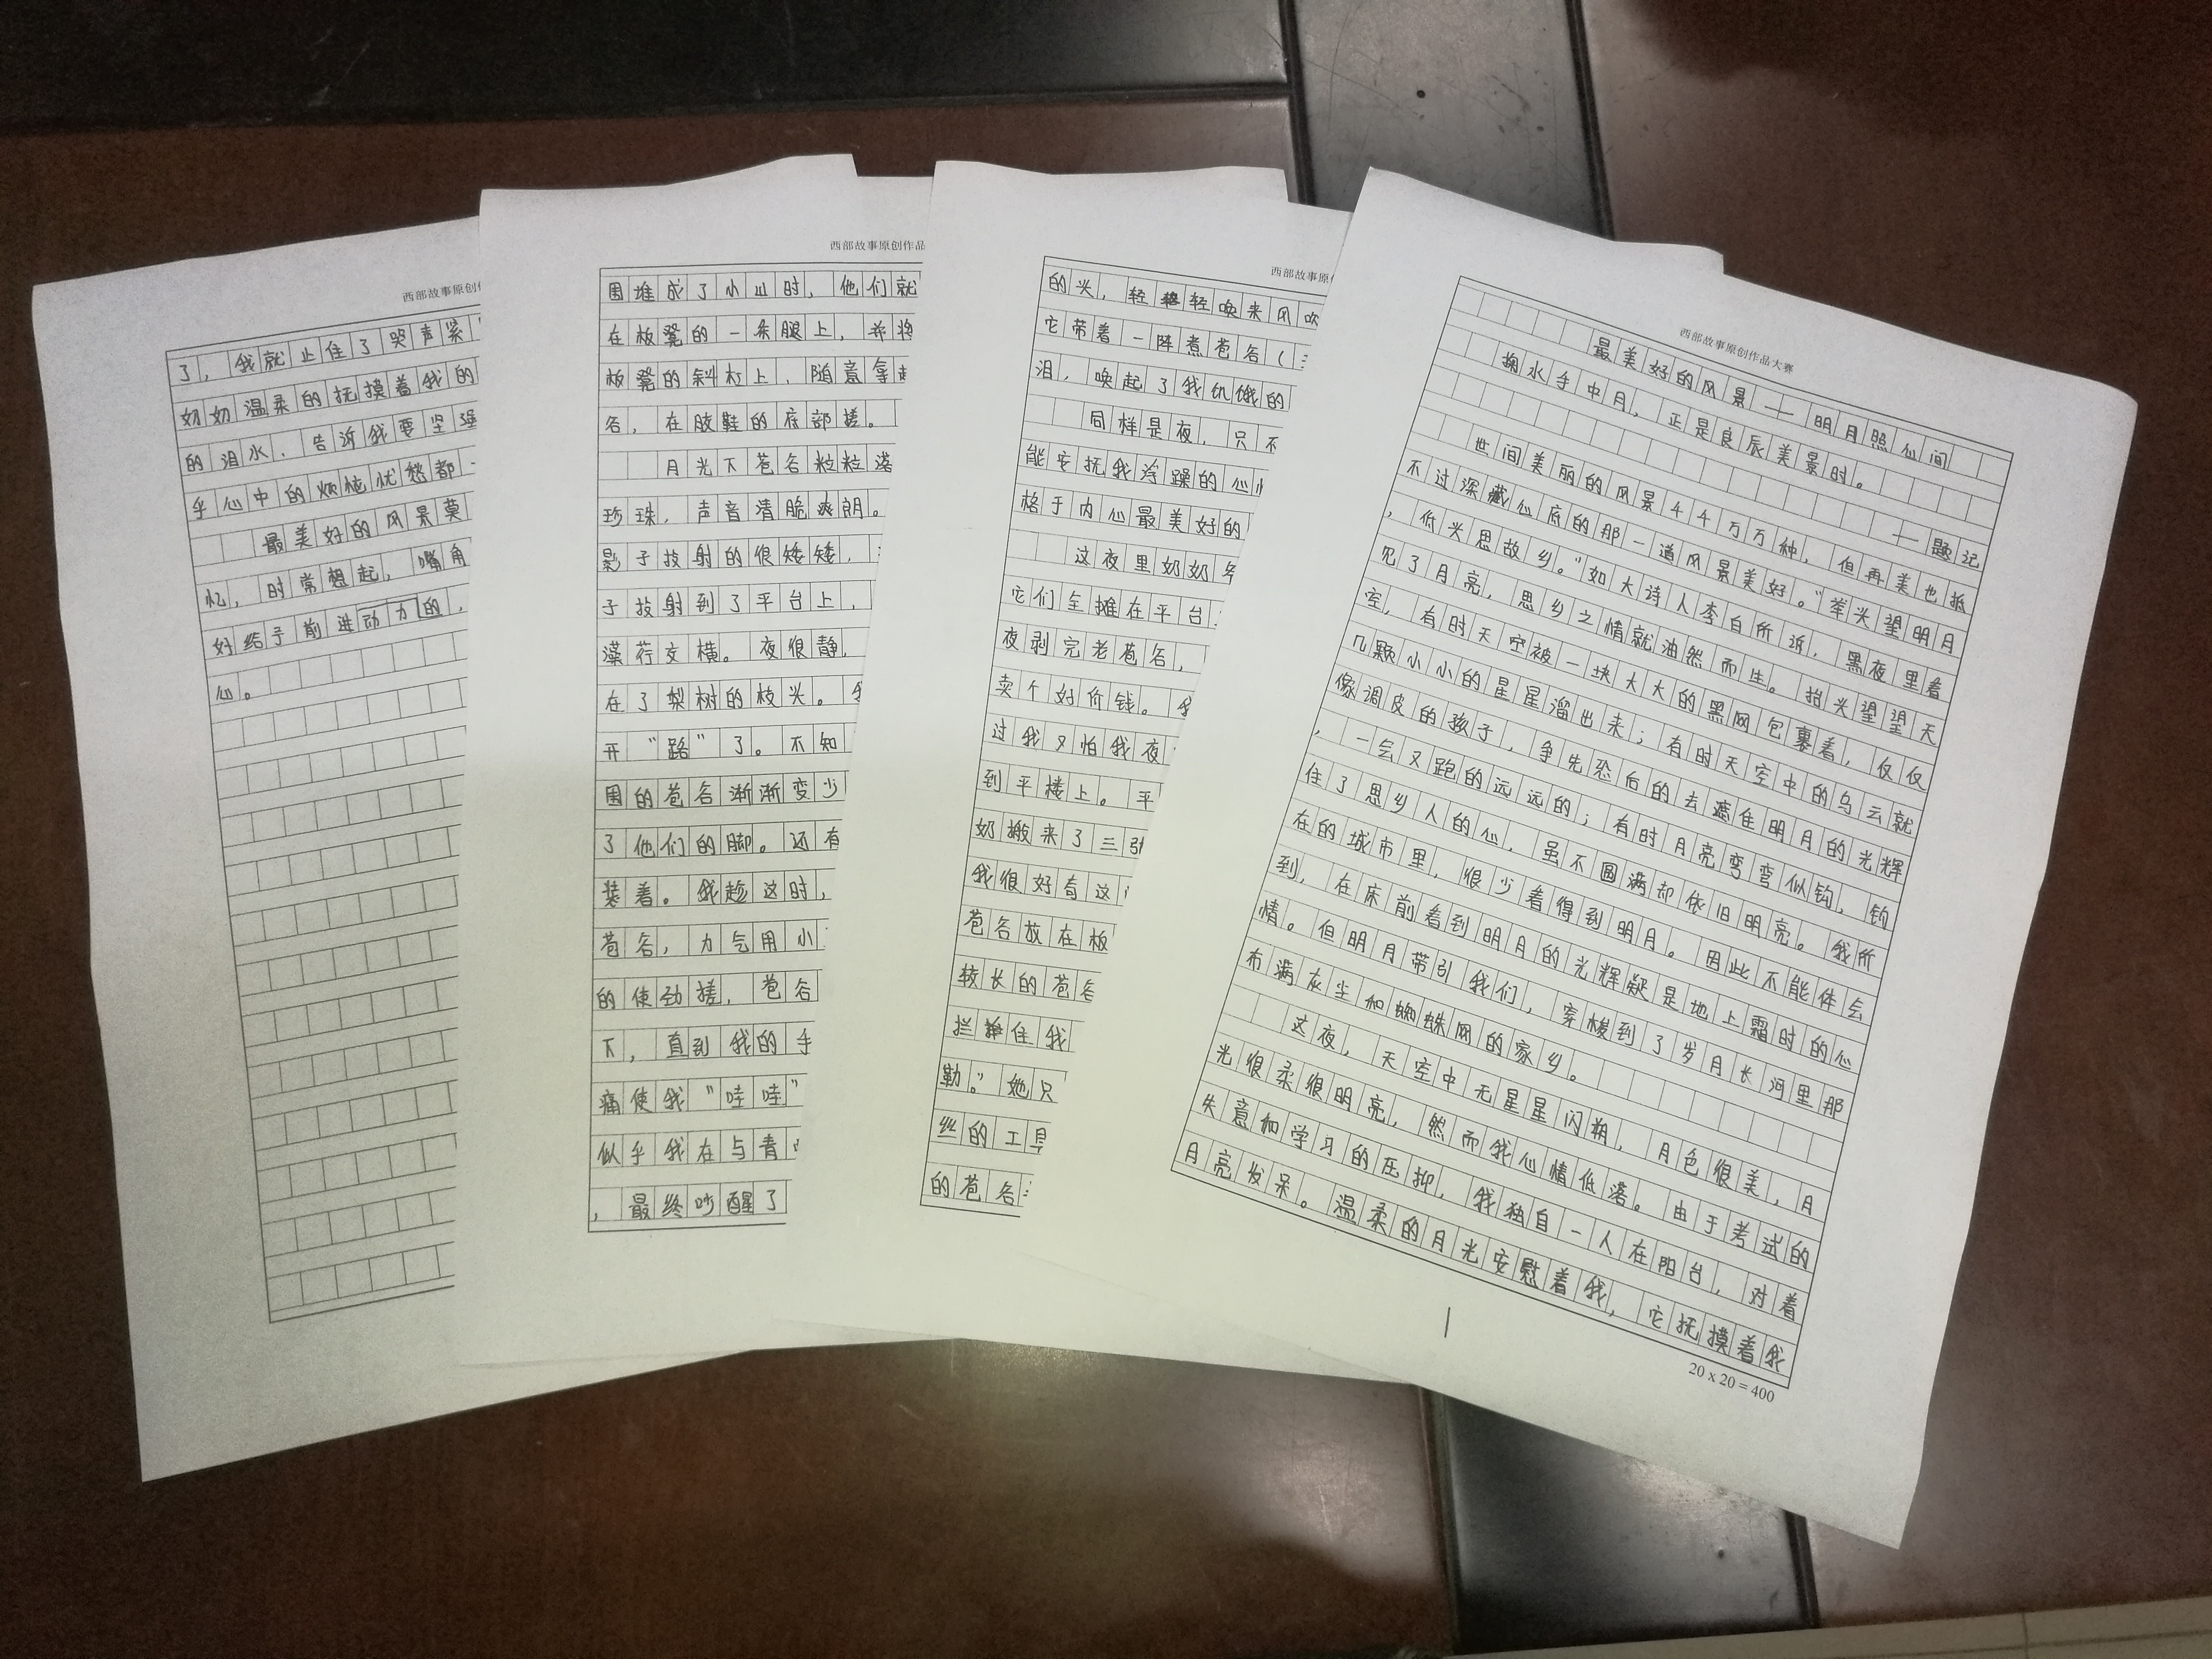 西部故事原创作品大赛
最美好的风景——明月照仙间
掬水手中月,正是良辰美景时。
——题记
世间美丽的风景千千万万种,但再美也抵
不过深藏心底的那一道风景美好。“举头望明月
,低头思故乡。”如大诗人李白所诉,黑夜里看
见了月亮,思乡之情就油然而生。抬头望望天
空,有时天空被一块大大的黑网包裹着,仅仅
几颗小小的星星溜出来;有时天空中的乌云就
像调皮的孩子,争先恐后的去遮住明月的光辉
,一会又跑的远远的;有时月亮弯弯似钩,钩
住了思乡人的心,虽不圆满却依旧明亮。我所
在的城市里,很少看得到明月。因此不能体会
到,在床前看到明月的光辉疑是地上霜时的心
情。但明月带引我们,穿梭到了岁月长河里那
布满灰尘和蜘蛛网的家乡。
这夜,天空中无星星闪朔,月色很美,月
光很柔很明亮,然而我心情低落。由于考试的
失意和学习的压抑,我独自一人在阳台,对着
月亮发呆。温柔的月光安慰着我,它抚摸着我
20 x 20 = 400
西部故事原
的头,轻轻唤来风吹
它带着一阵煮苞谷(
泪,唤起了我饥饿的
同样是夜,只不
能安抚我浮躁的心
格于内心最美好的
这夜里奶奶
它们全摊在平台
夜剥完老苞谷,
卖个好价钱。
过我又怕我夜
到平楼上。平
奶搬来了三张
我很好奇这
苞谷放在板
较长的苞谷
拦住我
勒。”她只
丝的工具
的苞谷
西部故事原创作品
围堆成了小山时,他们就
在板凳的一条腿上,并将
板凳的斜杠上,随意拿起
谷,在胶鞋的底部搓。
月光下苞谷粒粒落
珍珠,声音清脆爽朗。
影子投射的很矮矮,
子投射到了平台上,
藻荇交横。夜很静,
在了梨树的枝头。
开“路”了。不知
围的苞谷渐渐变少
了他们的脚。还有
装着。我趁这时,
苞谷,力气用小
的使劲搓,苞谷
下,直到我的手
痛使我“哇哇”
似乎我在与青
,最终吵醒了
西部故事原创
了,我就止住了哭声紧
奶奶温柔的抚摸着我的
的泪水,告诉我要坚强
乎心中的烦恼忧愁都
最美好的风景莫
忆,时常想起,嘴角
好给予前进动力的,
心。